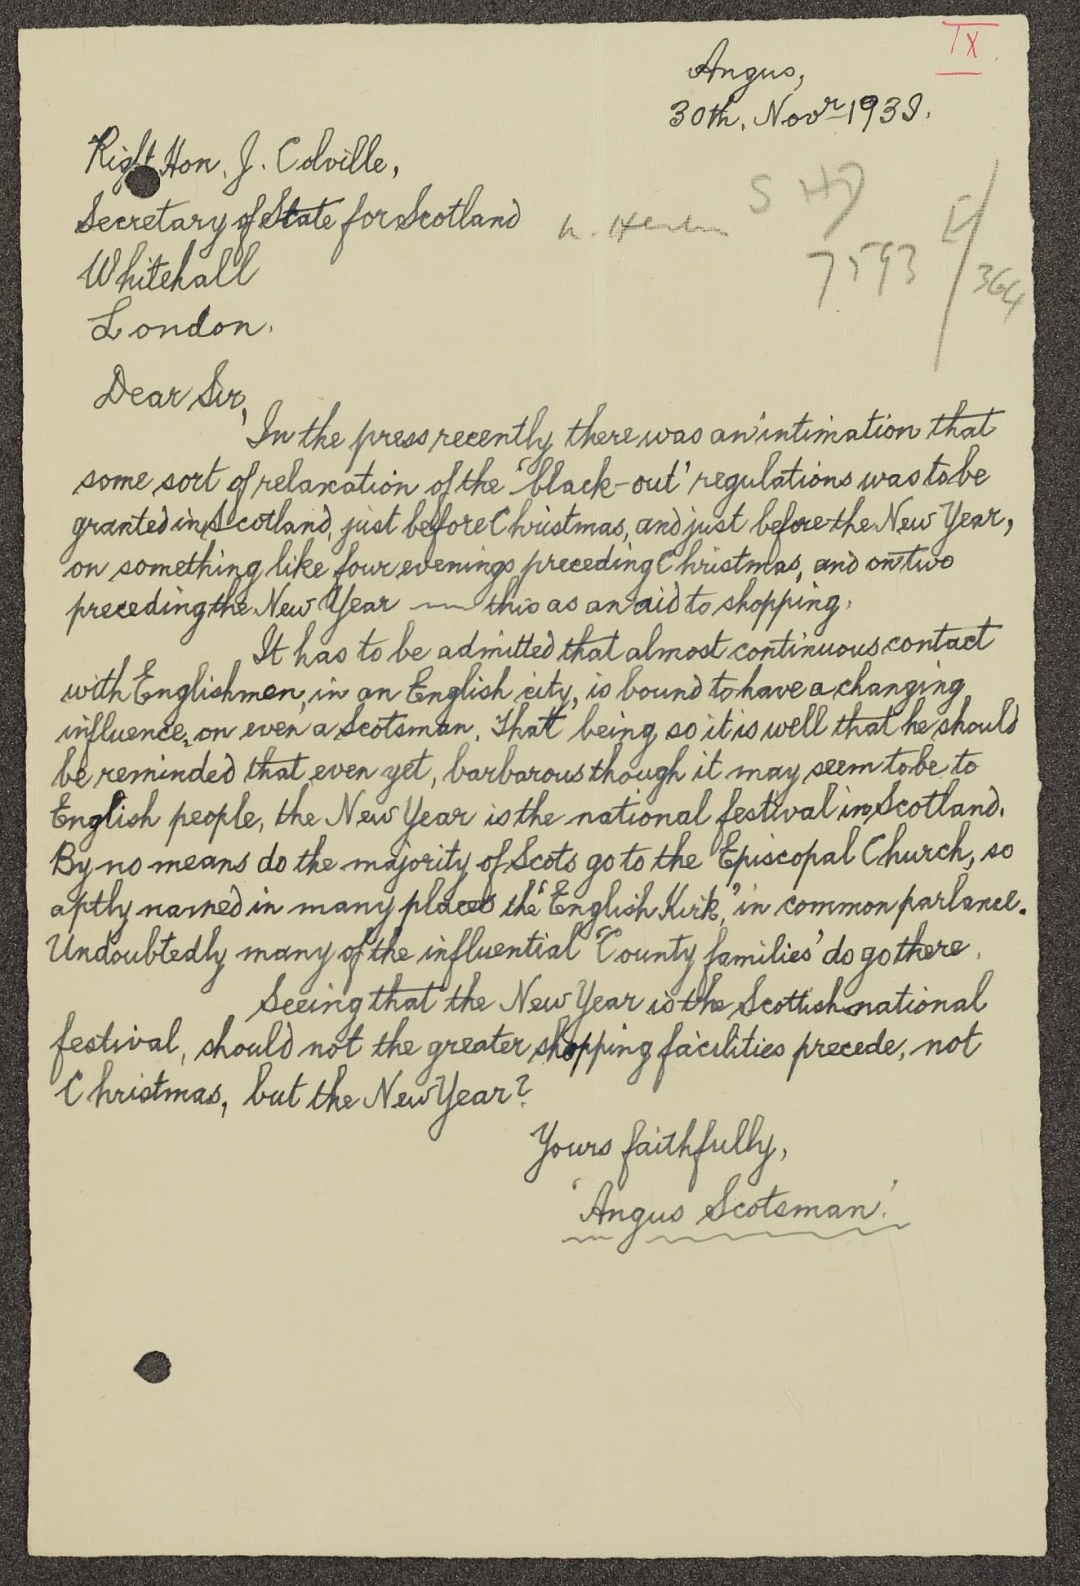 IX
Angus,
30th. Novr 1939.
Right Hon. J. Colville,
Secretary of State for Scotland
Whitehall
London.
S HD
7593
E/364
Dear Sir,
In the press recently there was an intimation that
some sort of relaxation of the 'black-out' regulations was to be
granted in Scotland, just before Christmas, and just before the New Year,
on something like four evenings preceding Christmas, and on two
preceding the New Year — this as an aid to shopping.
It has to be admitted that almost continuous contact
with Englishmen, in an English city, is bound to have a changing
influence, on even a Scotsman. That being so it is well that he should
be reminded that even yet, barbarous though it may seem to be to
English people, the New Year is the national festival in Scotland.
By no means do the majority of Scots go to the Episcopal Church, so
aptly named in many places the 'English Kirk,' in common parlance.
Undoubtedly many of the influential 'County families' do go there.
Seeing that the New Year is the Scottish national
festival, should not the greater shopping facilities precede, not
Christmas, but the New Year?
Yours faithfully,
'Angus Scotsman.'